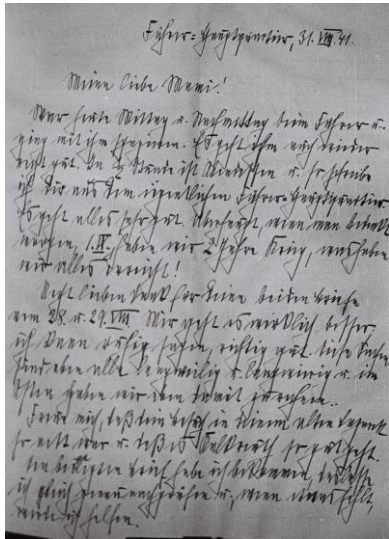 Führer-Hauptquartier, 31. VIII. 41.
Meine liebe Mami!
War heute Mittag u. Nachmittag beim Führer u.
ging mit ihm spazieren. Es geht ihm auch wieder
recht gut. In ½ Stunde ist Abendessen u. so schreibe
ich Dir aus dem Führer-Hauptquartier.
Es geht alles sehr gut. Überhaupt, wenn man bedenkt
morgen, 1. IX. haben wir 2 Jahre Krieg, was haben
wir alles erreicht!
Recht lieben Dank für Deine beiden Briefe
vom 28. u. 29. VIII. Mir geht es wirklich besser,
ich kann ruhig sagen, richtig gut. Diese
sind eben alle langweilig u. langwierig u. im
Osten haben wir eben damit zu rechnen.
Freue mich, daß Dein Besuch in Deinem alten
so nett war u. daß es so gut geht.
Den Brief habe ich bekommen,
ich gleich genau nachprüfen u., wenn etwas fehlt,
werde ich helfen.